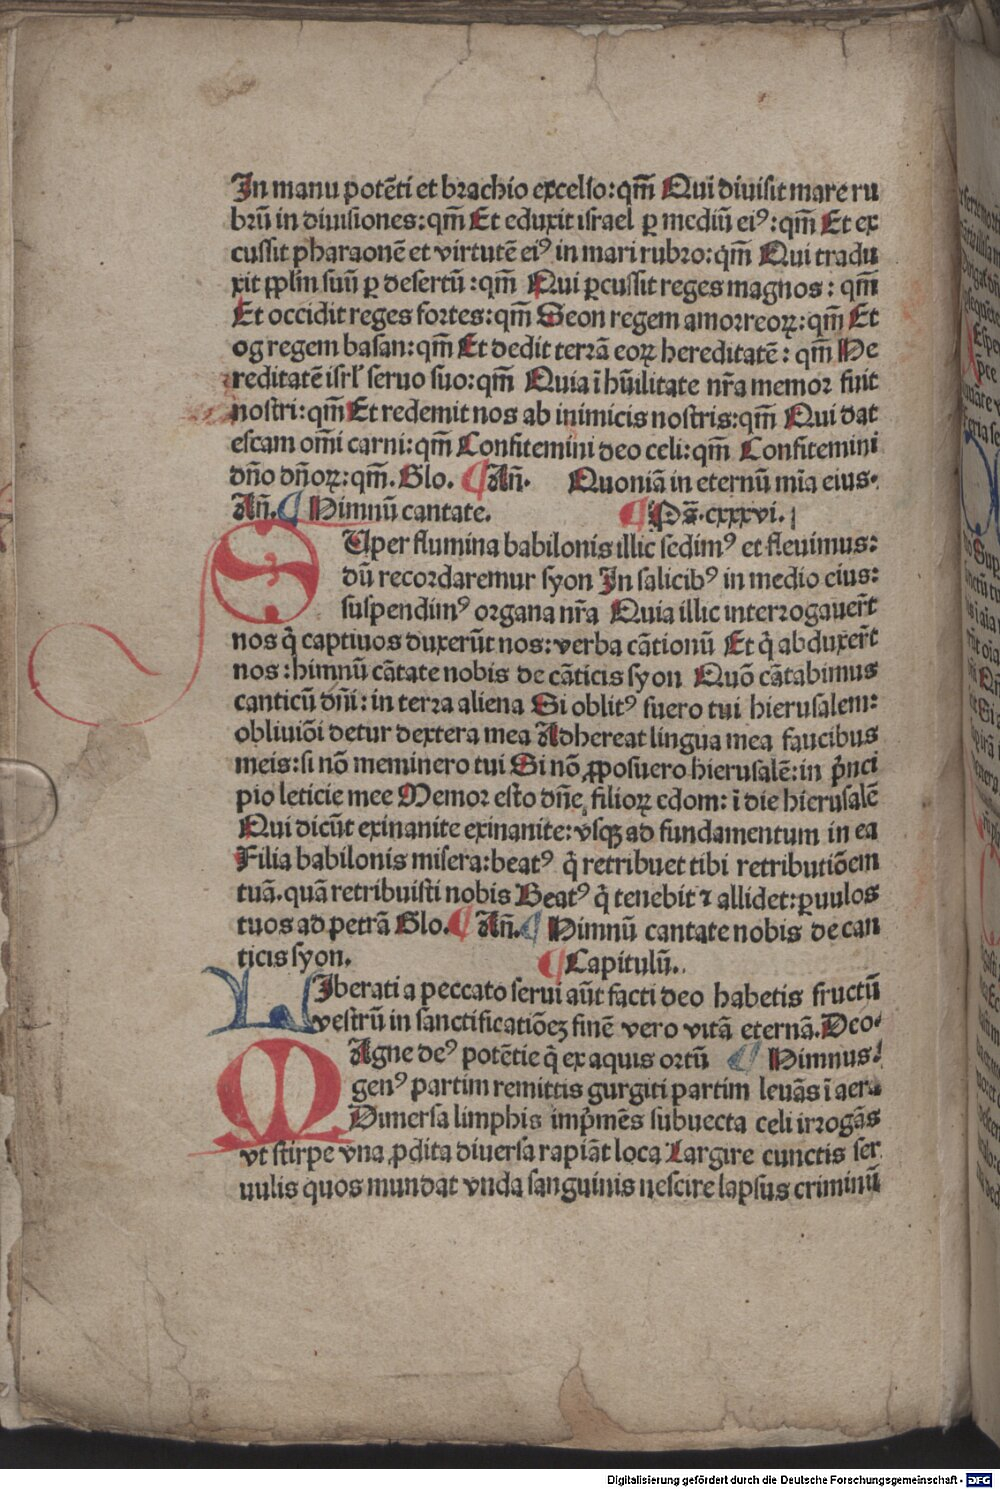 In manu potẽti et brachio excelso: qm̃ Qui diuisit mare ru
brũ in diuisiones: qm̃ Et eduxit israel ꝑ mediũ eiꝰ: qm̃ Et ex
cussit pharaonẽ et virtutẽ eiꝰ in mari rubro: qm̃ Qui tradu
xit pplm̃ suũ ꝑ desertũ: qm̃ Qui ꝑcussit reges magnos: qm̃
Et occidit reges fortes: qm̃ Seon regem amorreoꝝ: qm̃ Et
og regem basan: qm̃ Et dedit terrã eoꝝ hereditatẽ: qm̃ He
reditatẽ isrl̃ seruo suo: qm̃ Quia ĩ hũilitate nr̃a memor fuit
nostri: qm̃ Et redemit nos ab inimicis nostris: qm̃ Qui dat
escam om̃i carni: qm̃ Confitemini deo celi: qm̃ Confitemini
dño dñoꝝ: qm̃. Glo. ¶ Añ. Quoniã in eternũ mĩa eius.
Añ. ¶ Himnũ cantate. ¶ Ps̃. cxxxvi.
SUper flumina babilonis illic sedimꝰ et fleuimus:
dũ recordaremur syon In salicibꝰ in medio eius:
suspendimꝰ organa nr̃a Quia illic interrogauer̃t
nos q̃ captiuos duxerũt nos: verba cãtionũ Et q̃ abduxer̃t
nos: himnũ cãtate nobis de cãticis syon Quõ cãtabimus
canticũ dñi: in terra aliena Si oblitꝰ fuero tui hierusalem:
obliuiõi detur dextera mea Adhereat lingua mea faucibus
meis: si nõ meminero tui Si nõ ꝓposuero hierusalẽ: in p̃nci
pio leticie mee Memor esto dñe filioꝝ edom: ĩ die hierusalẽ
Qui dicũt exinanite exinanite: vsqꝫ ad fundamentum in ea
Filia babilonis misera: beatꝰ q̃ retribuet tibi retributiõem
tuã. quã retribuisti nobis Beatꝰ q̃ tenebit ⁊ allidet: ꝑuulos
tuos ad petrã Glo. ¶ Añ. ¶ Himnũ cantate nobis de can
ticis syon. ¶ Capitulũ.
LIberati a peccato serui aũt facti deo habetis fructũ
vestrũ in sanctificatiõeꝫ finẽ vero vitã eternã. Deo.
MAgne deꝰ potẽtie q̃ ex aquis ortũ ¶ Himnus.
genꝰ partim remittis gurgiti partim leuãs ĩ aera
Dimersa limphis imp̃mẽs subuecta celi irrogãs
vt stirpe vna ꝓdita diuersa rapiãt loca Largire cunctis ser
uulis quos mundat vnda sanguinis nescire lapsus criminũ
Digitalisierung gefördert durch die Deutsche Forschungsgemeinschaft - DFG